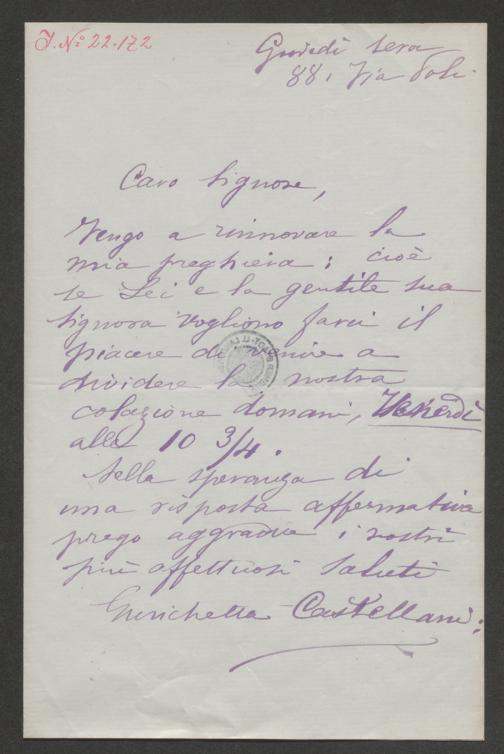 J. № 22.172
Giovedì sera
88, Via Poli
Caro Signore,
Vengo a rinnovare la
mia preghiera: cioè
se Lei e la gentile sua
Signora vogliono farci il
piacere di venire a
dividere la nostra
colazione domani, Venerdì
alle 10 3/4.
Nella speranza di
una risposta affermativa
prego aggradire i nostri
più affettuosi saluti
Enrichetta Castellani.